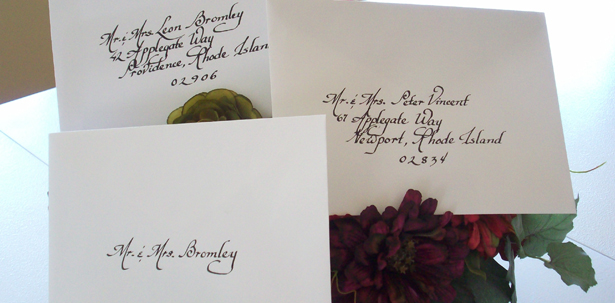 Mr. & Mrs. Leon Bromley
42 Applegate Way
Providence, Rhode Island
02906
Mr. & Mrs. Peter Vincent
67 Applegate Way
Newport, Rhode Island
02834
Mr. & Mrs. Bromley